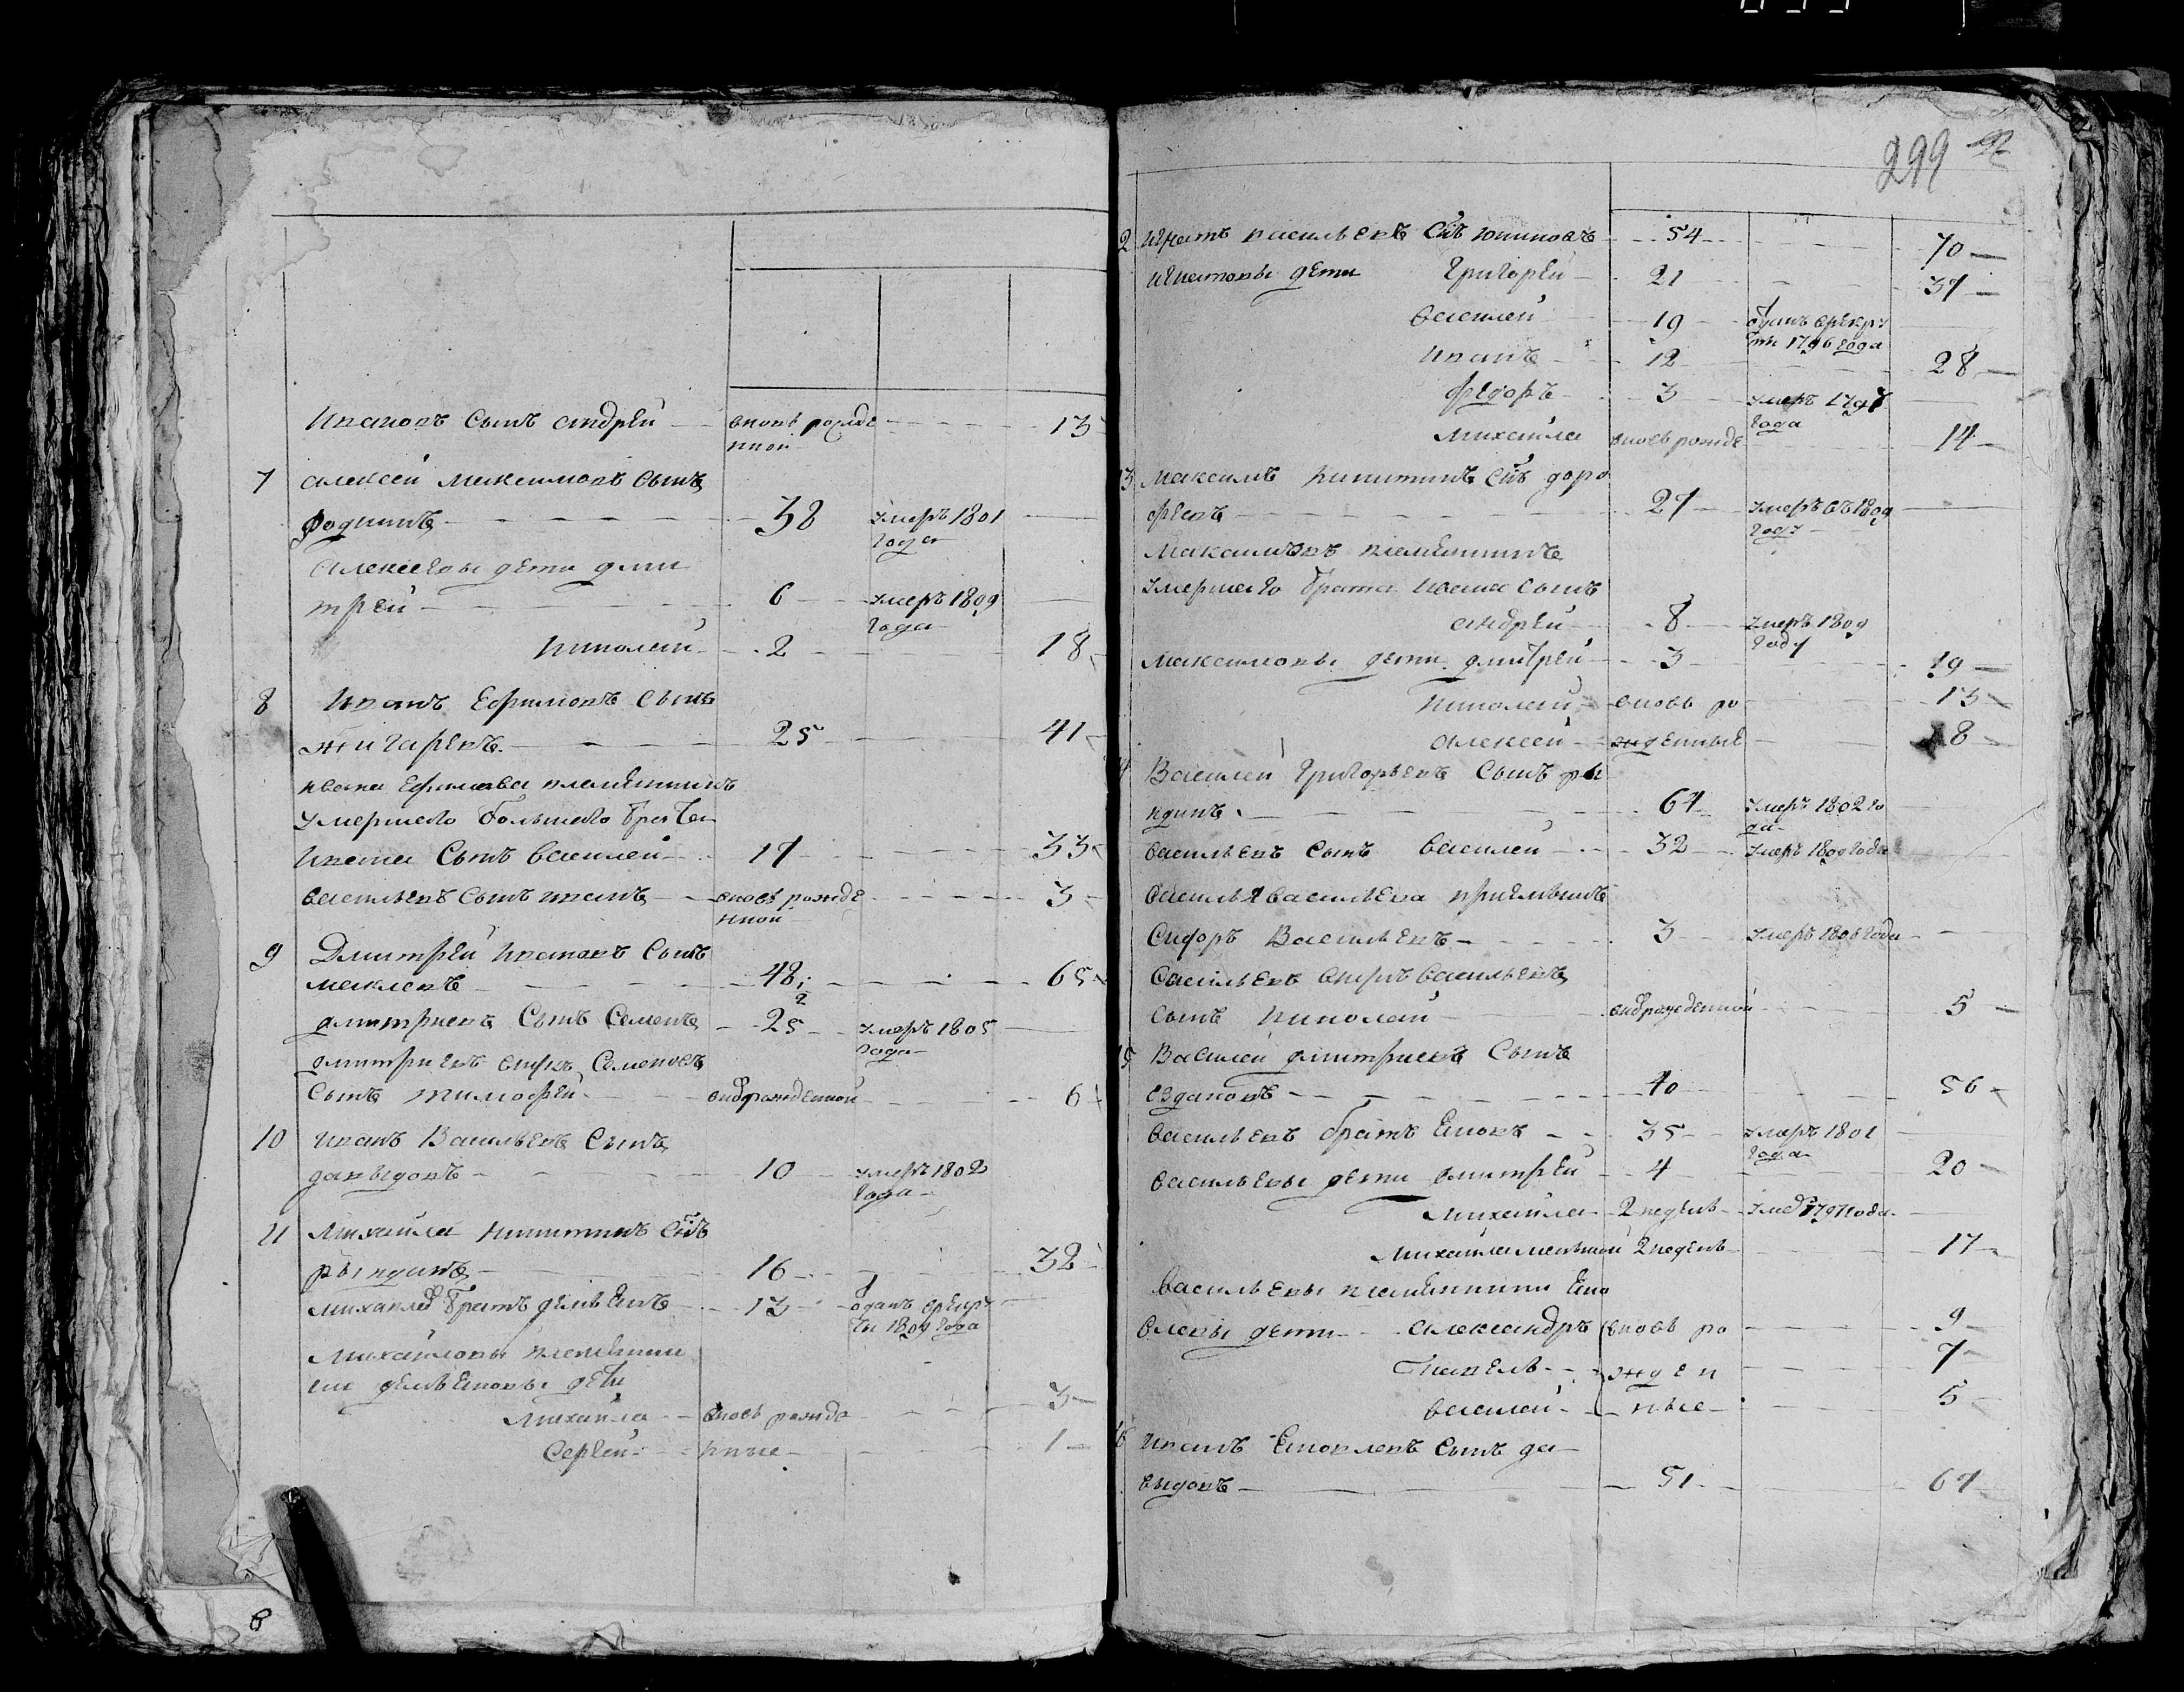 299
Ивановъ Сынъ андрей вновь рожде 13
нной
7 алексей максимовъ Сынъ
фоднинъ 38 умеръ 1801
года
Алексеевы дети дми
трей 6 умеръ 1809
года
николай 2 18
8 Иванъ Ефимовъ Сынъ
жигаревъ 25 41
ивана Ефимова племянникъ
умершего большего брата
ивана Сынъ василей 17 33
васильевъ Сынъ иванъ вновь рожде 3
нной
9 Дмитрей ивановъ Сынъ
маклевъ 48 65
дмитриевъ Сынъ Семенъ 25 умеръ 1805
года
дмитриевъ внукъ Семеновъ
Сынъ тимофей вновьрожденной 6
10 иванъ Васильевъ Сынъ
давыдовъ 10 умеръ 1802
года
11 Михаила никитинъ Снъ
рындинъ 16 32
михайлов братъ демьенъ 13 оданъ врекру
ты 1809 года
Михайловы племянни
ки демьеновы дети
михаила вновь рожде 3
Сергей нные 1
2 игнатъ васильевъ Снъ юкиновъ 54 70
игнатовы дети григорей 21 37
василей 19 отданъ врекру
ты 1796 года
иванъ 12 28
федоръ 3 умеръ 1797
года
михаила вновь рожде 14
13 максимъ никитинъ Снъ доро
феевъ 27 умеръ въ 1809
году
Максимовъ племянникъ
умершего брата ивана Сынъ
андрей 8 умеръ 1809
году
максимовы дети дмитрей 3 19
николай вновь ро 13
алексей жденные 8
Василей григорьевъ Сынъ ры
ндинъ 64 умеръ 1802 го
да
васильевъ сынъ василей 32 умеръ 1809 года
василья васильева приемышъ
Сидоръ Васильевъ 3 умеръ 1806 года
васильевъ внукъ васильевъ
сынъ николай вновьрожденной 5
15 Василей дмитриевъ Сынъ
ездаковъ 40 56
васильевъ братъ Ековъ 35 умеръ 1801
года
васильевы дети дмитрей 4 20
михаила 2 недель умеръ 1797 года
михаила меньшей 2 недель 17
васильевы племянники Еко
влевы дети александръ вновь ро 9
павелъ жден 7
василей ные 5
16 иванъ Ековлевъ Сынъ да
выдовъ 51 67